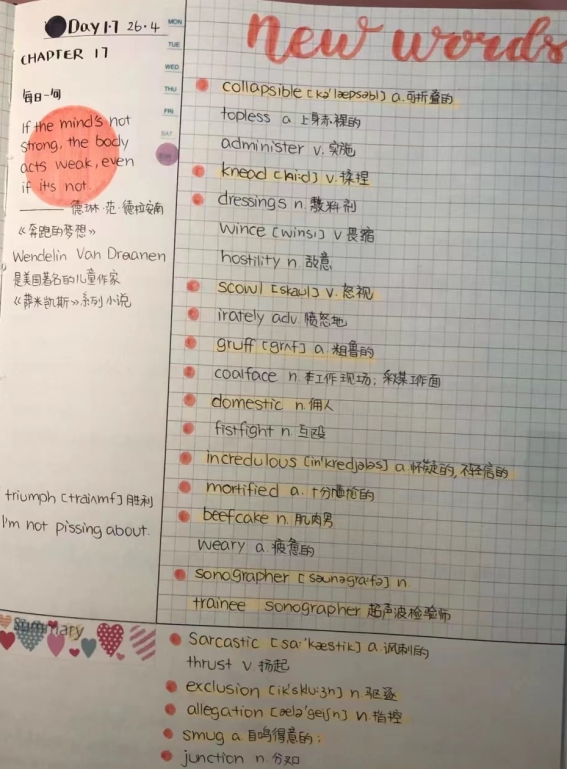 Day 1.7 26.4
CHAPTER 17
每日一句
If the mind's not
strong, the body
acts weak, even
if it's not.
—— 德琳·范·德拉安南
《奔跑的梦想》
Wendelin Van Draanen
是美国著名的儿童作家
《萨米凯斯》系列小说
triumph [traiʌmf] 胜利
I'm not pissing about.
MON
TUE
WED
THU
FRI
SAT
SUN
new words
collapsible [kə'læpsəbl] a. 可折叠的
topless a 上身赤裸的
administer v. 实施
knead [ni:d] v. 揉捏
dressings n. 敷料剂
wince [wins] v 畏缩
hostility n. 敌意
scowl [skaul] v. 怒视
irately adv. 愤怒地
gruff [grʌf] a. 粗鲁的
coalface n. 工作现场; 采煤工作面
domestic n. 佣人
fistfight n. 互殴
incredulous [in'kredjələs] a. 怀疑的, 不轻信的
mortified a. 十分尴尬的
beefcake n. 肌肉男
weary a. 疲惫的
sonographer [səunəgra:fə] n
trainee sonographer 超声波检验师
Summary
Sarcastic [sa:'kæstik] a. 讽刺的
thrust v. 扬起
exclusion [ik'sklu:ʒn] n. 驱逐
allegation [ælə'geiʃn] n. 指控
smug a. 自鸣得意的;
junction n. 分如